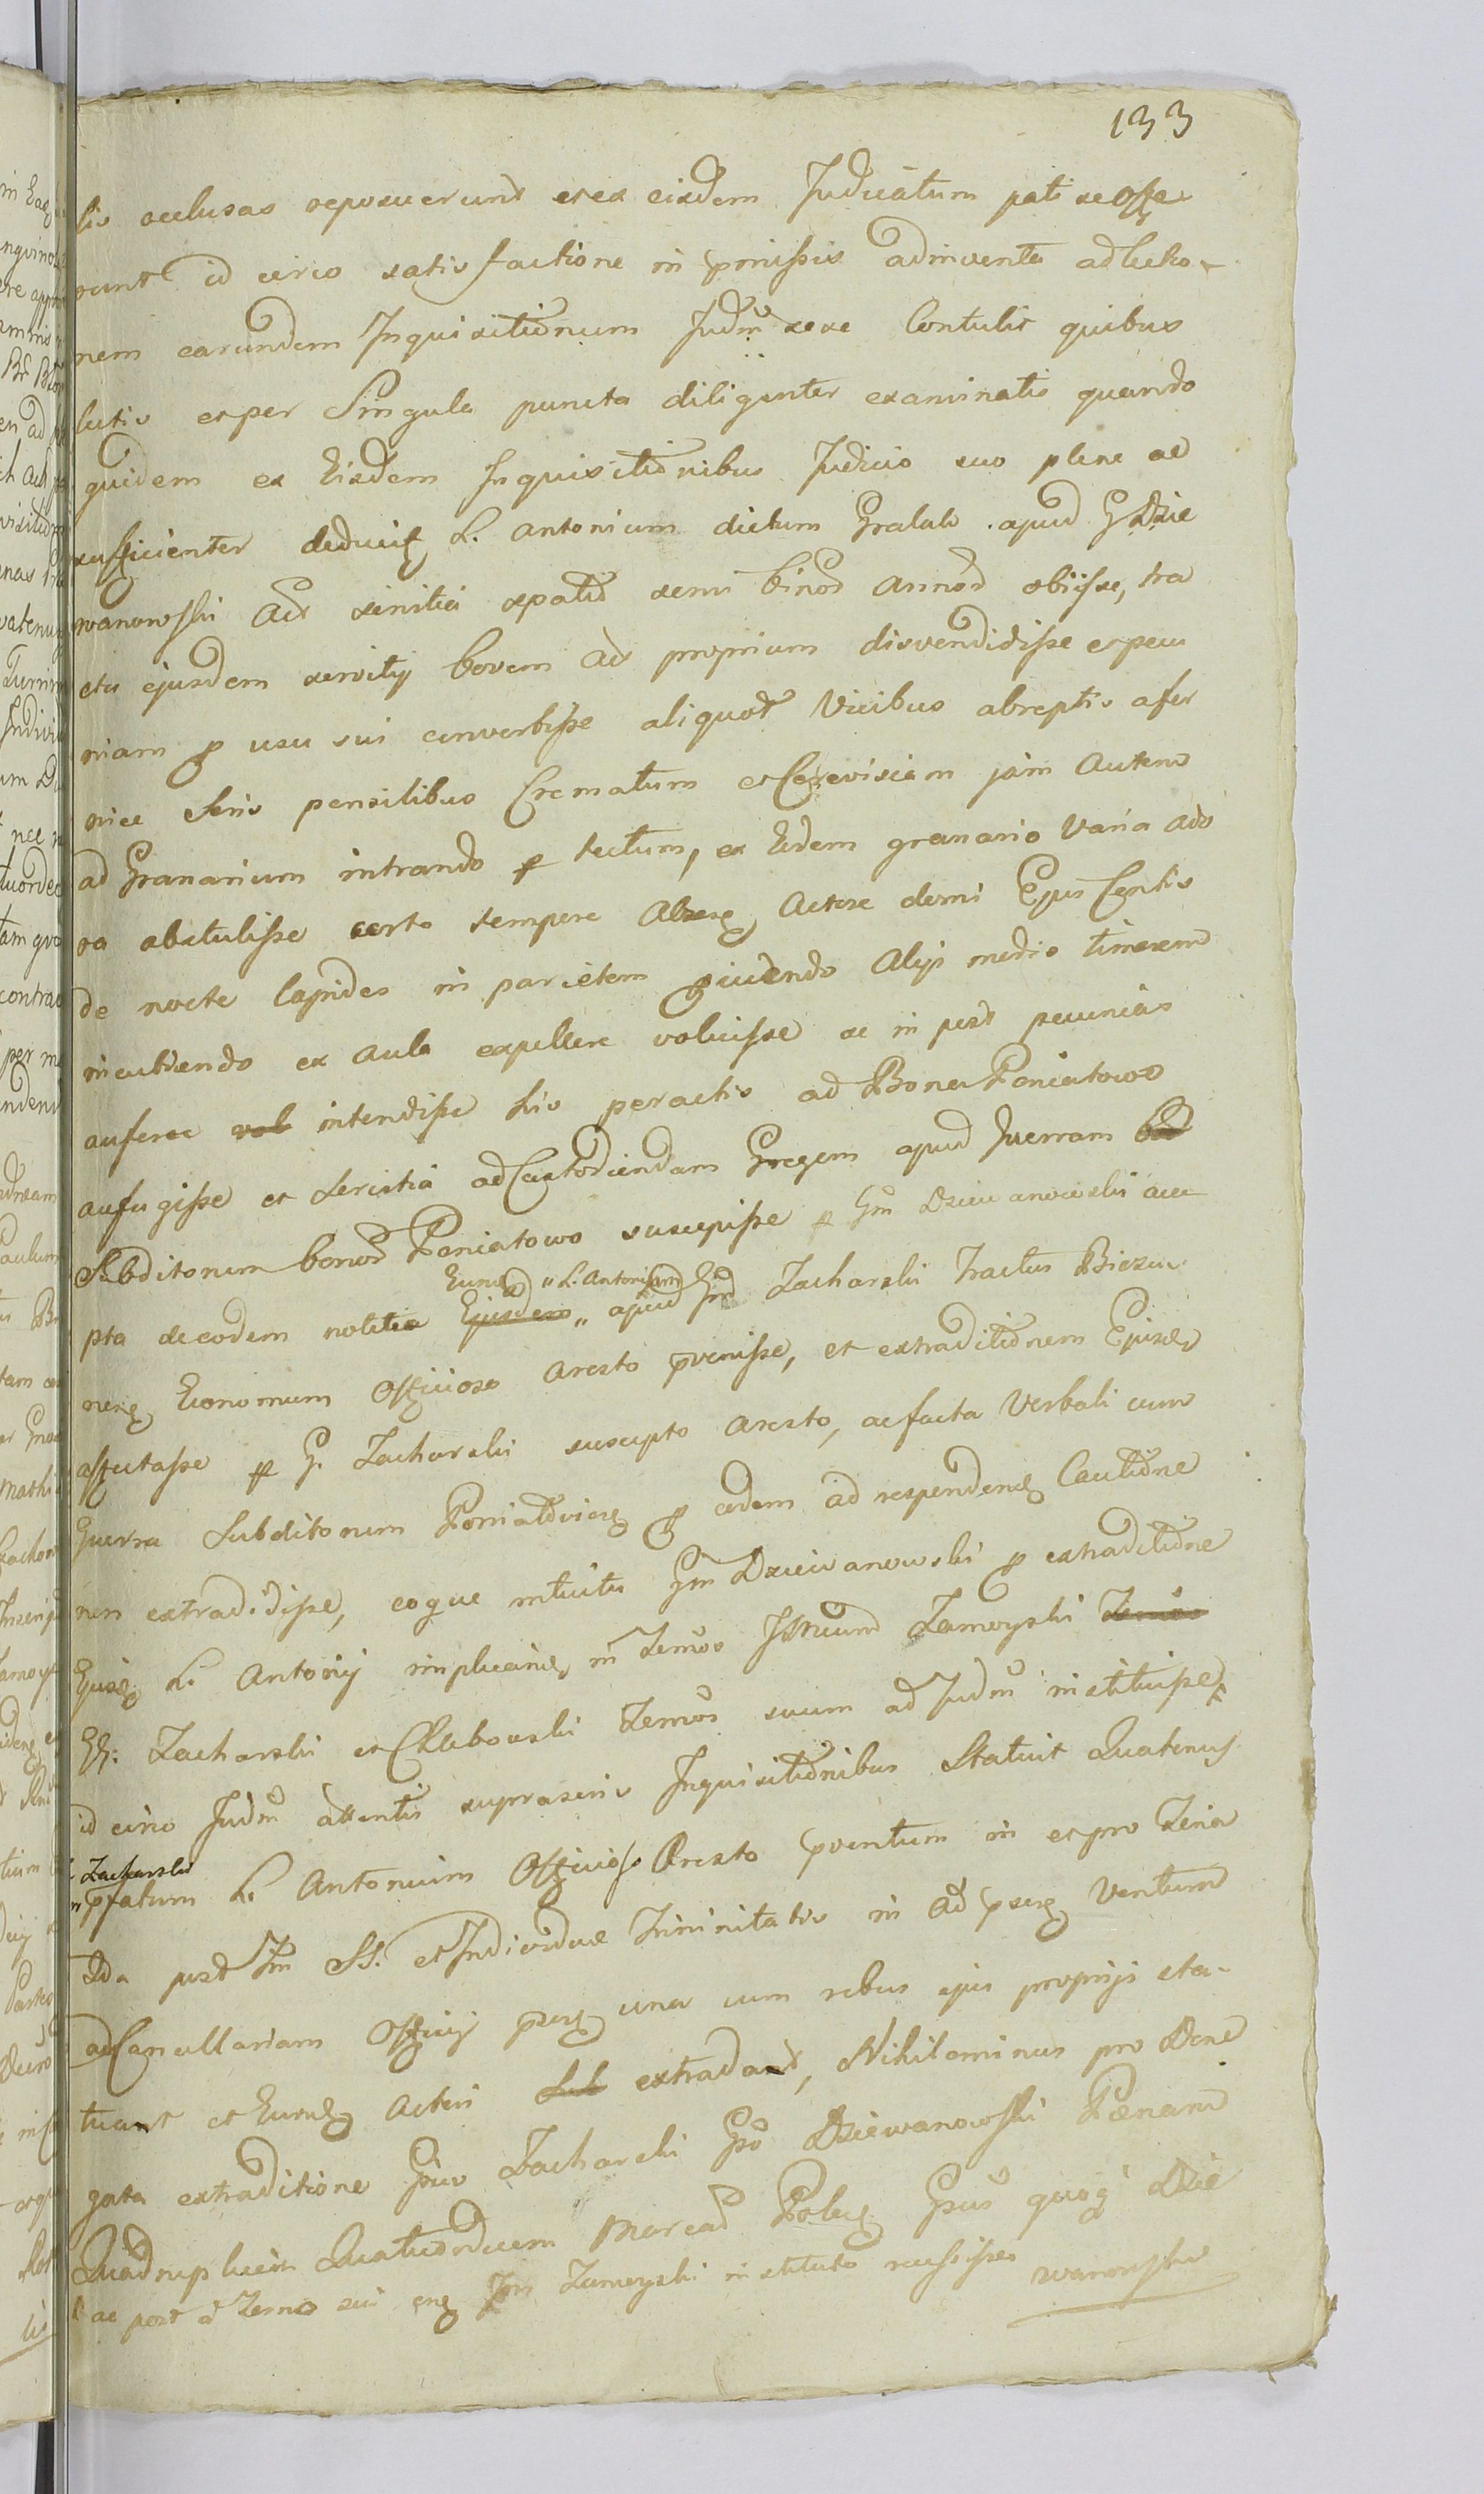 133
tis occlusas reposuerunt et ex eisdem Judicatum pati se offe
runt id circo satisfactione in pmissis adinventa ad lectio-
nem earundem Inquisitionum Judm sese Contulit quibus
lectis et per Singula puncta diligenter examinatis quando
quidem ex Eisdem Inquisitionibus Judicio suo plene ac
sufficienter deducit L. Antonium dictum Gralak apud G Dzie
wanowski Act servitia spatio semi binor annor obiisse, tra
ctu ejusdem servitij bovem Act proprium disvendidisse et pecu
niam p usu sui convertisse aliquot Vicibus abreptis a for
nice Seris pensilibus Crematum et Cerevisiam jam autem
ad Granarium intrando p tectum, ex Eodem granario Varia ado
ra abstulisse certo tempore Absen Actore domi Ejus Gentis
de nocte lapides in parietem projiciendo Alijs medio timorem
incutiendo ex aula expellere voluisse ac in post pecunias
auferre intendisse his peractis ad Bona Poniatowo
aufugisse et servitia ad Custodiendam Gregem apud Guerram
Subditorum bonor Poniatowo suscepisse p Gm Dziewanowski acce
pta de eodem notitia Ejusdem apud Gm Zacharski Tractus Biezu
Eund " L. Antonium
nen Economum Officioso Aresto pvenisse, et extraditionem Ejusd
affectasse p G. Zacharski suscepto Aresto, ac facta Verbali cum
Guerra Subditorum Poniatovien p eodem ad responden Cautione
non extradidisse, eoque intuitu Gm Dziewanowski p extraditione
Ejusd L. Antonij implican in Termos Zamoyski
GG. Zacharski et Chlebowski Termos suum ad Judm instituisse
id circo Judm attentis suprascris Inquisitionibus Statuit Quatenus
Zacharski
pfatum L. Antonium Officioso Aresto pventum in et pro Feria
2da post Fm SS. et Individuae Trinitatis in Ad psen Ventum
ad Cancellariam Officij psen una cum rebus ejus proprijs sta-
tuant et Eund Actori extradant, Nihilominus pro Dene
gata extraditione Gsus Zacharski Gso Dziewanowski Paenam
Quadruplicem Quatuordecem Marcar Polcz Gsus quoq Dzie
ac post a Termo sui erg Zamoyski instituto recessisse wanowski